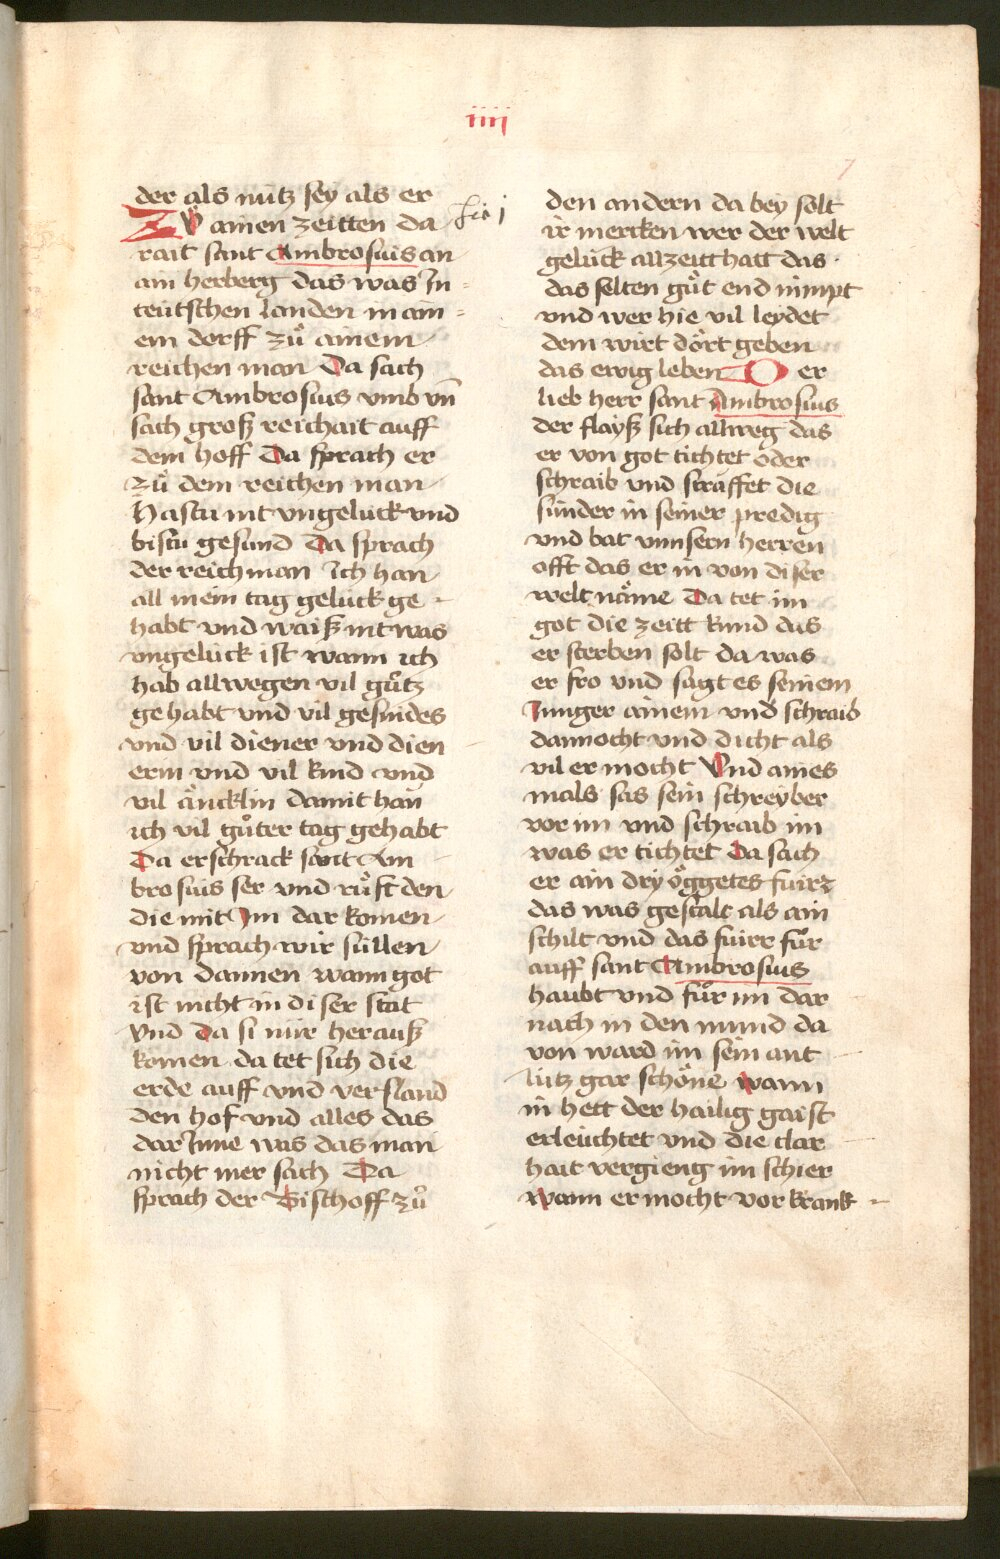 iiij
7
der als nutz sey als er
Zů ainen zeitten da
rait sant Ambrosius an
ain herberg das was Jn
teutschen landen in ain
em dorff zů ainem
reichen man Da sach
sant Ambrosius vmb vn̄
sach groß reichait auff
dem hoff Da sprach er
zů dem reichen man
Hastu nit vngeluck vnd
bistu gesund Da sprach
der reich man Ich han
all mein tag geluck ge
habt vnd waiß nit was
vngeluck ist wann ich
hab allwegen vil gůtz
gehabt vnd vil gesindes
vnd vil diener vnd dien
erin vnd vil kind vnd
vil äncklin damit han
ich vil gůter tag gehabt
Da erschrack sant Am
brosius ser vnd růft den
die mit Jm dar komen
vnd sprach wir süllen
von dannen wann got
ist nicht in diser stat
Vnd da si nür herauß
komen da tet sich die
erde auff vnd versland
den hof vnd alles das
dar Jnne was das man
nicht mer sach Da
sprach der Bischoff zů
den andern da bey solt
ir mercken wer der welt
gelück allzeitt hatt das
das selten gůt end nimpt
vnd wer hie vil leydet
dem wirt dört geben
das ewig leben Der
lieb herr sant Ambrosius
der flayß sich allweg das
er von got tichtet oder
schraib vnd straffet die
sünder in seiner predig
vnd bat vnnsern herren
offt das er in von diser
welt näme Da tet im
got die zeitt kund das
er sterben solt da was
er fro vnd sagt es seinem
Junger ainem vnd schraib
dannocht vnd dicht als
vil er mocht Vnd aines
mals sas sein schreyber
vor im vnd schraib im
was er tichtet Da sach
er ain dry öggetes fuir
das was gestalt als ain
schilt vnd das fuirr fůr
auff sant Ambrosius
haubt vnd fůr im dar
nach in den mund da
von ward im sein ant
lütz gar schöne wann
in hett der hailig gaist
erleuchtet vnd die clar
hait vergieng im schier
wann er mocht vor krank